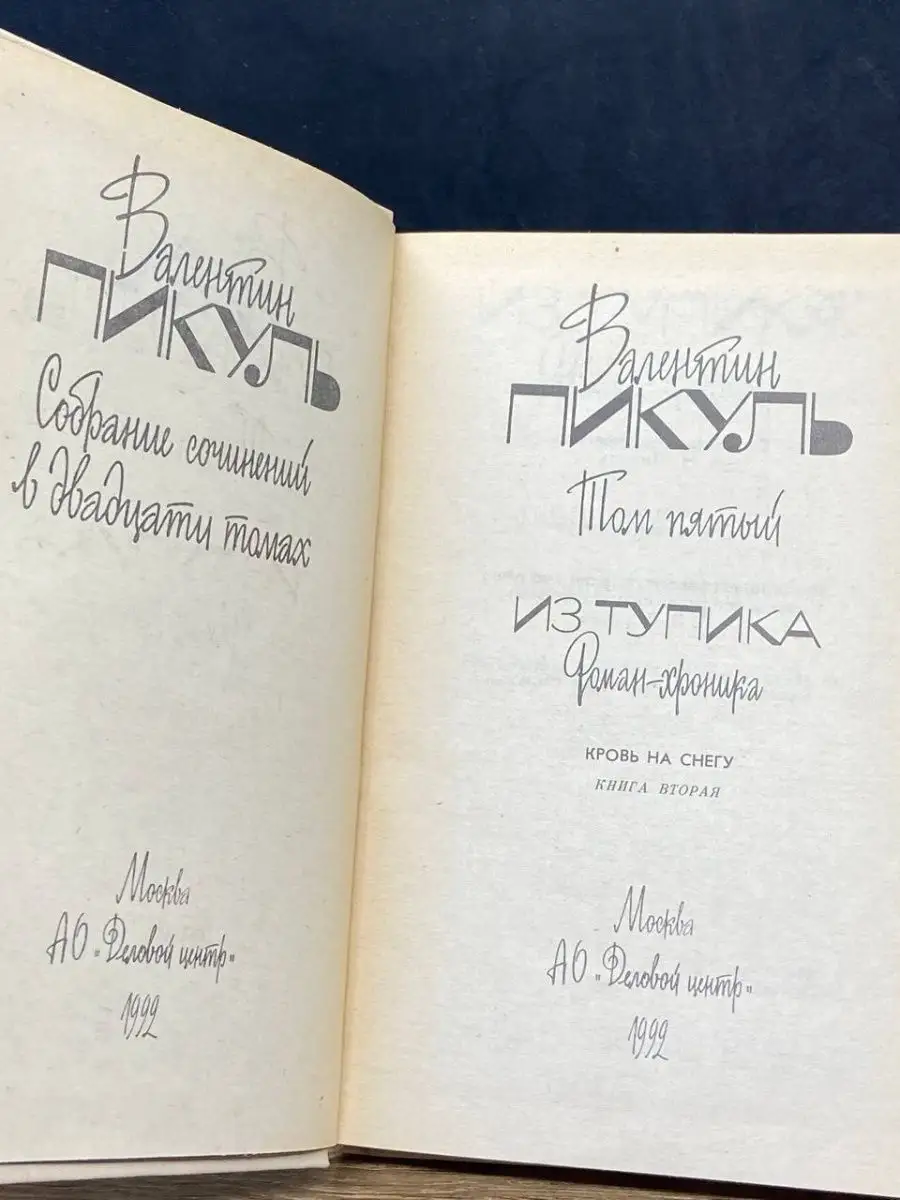 Валентин
ПИКУЛЬ
Собрание сочинений
в двадцати томах
Москва
АО "Деловой центр"
1992
Валентин
ПИКУЛЬ
Том пятый
ИЗ ТУПИКА
Роман-хроника
КРОВЬ НА СНЕГУ
КНИГА ВТОРАЯ
Москва
АО "Деловой центр"
1992